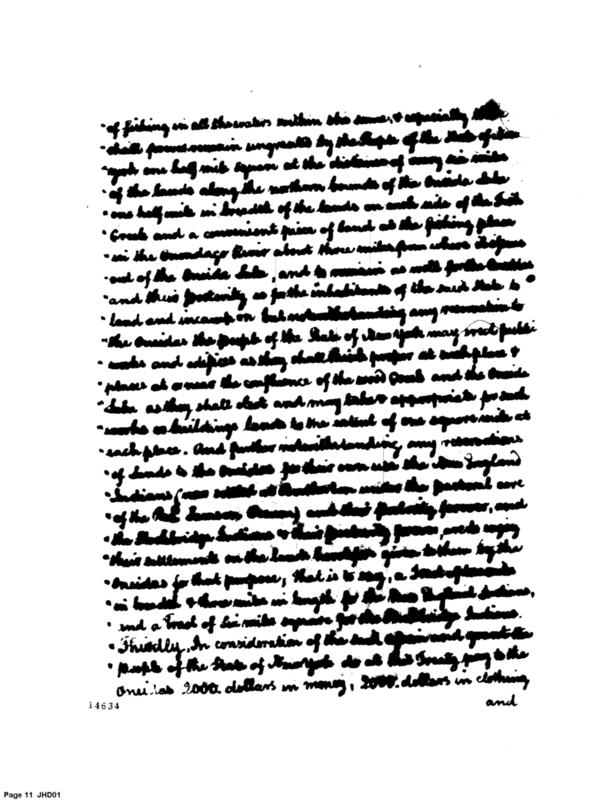 "of fishing in all the waters within the same, & especially there
"shall forever remain ungranted by the People of the State of New
"york one half mile square at the distance of every six miles
"of the lands along the northern bounds of the Oneida Lake
"one half mile in breadth of the lands on each side of the Fish
"Creek and a convenient piece of land at the fishing place
"in the Onondago River about three miles from where it issues
"out of the Oneida Lake, and to remain as well for the Oneidas
"and their posterity as for the inhabitants of the said State to
"land and incamp on but notwithstanding any reservation to
"the Oneidas the people of the State of New York may erect public
"works and edifices as they shall think proper at such place &
"places at or near the confluence of the wood Creek and the Oneida
"Lake as they shall elect and may take & appropriate for such
"works or buildings lands to the extent of one square mile at
"each place. And further notwithstanding any reservations
"of Lands to the Oneidas for their own use the New England
"Indians (now settled at Brotherton under the pastoral care
"of the Rev. Samson Occum) and their posterity forever, and
"the Stockbridge Indians & their posterity forever, are to enjoy
"their settlements on the lands heretofore given to them by the
"Oneidas for that purpose, that is to say, a Tract of two miles
"in breadth & three miles in length for the New England Indians,
"and a Tract of six miles square for the Stockbridge Indians.
"Thirdly, In consideration of the said cession and grant the
"people of the State of New York do at this Treaty pay to the
Oneidas 2000 dollars in money, 2000 dollars in clothing
and
14634
Page 11 JHD01